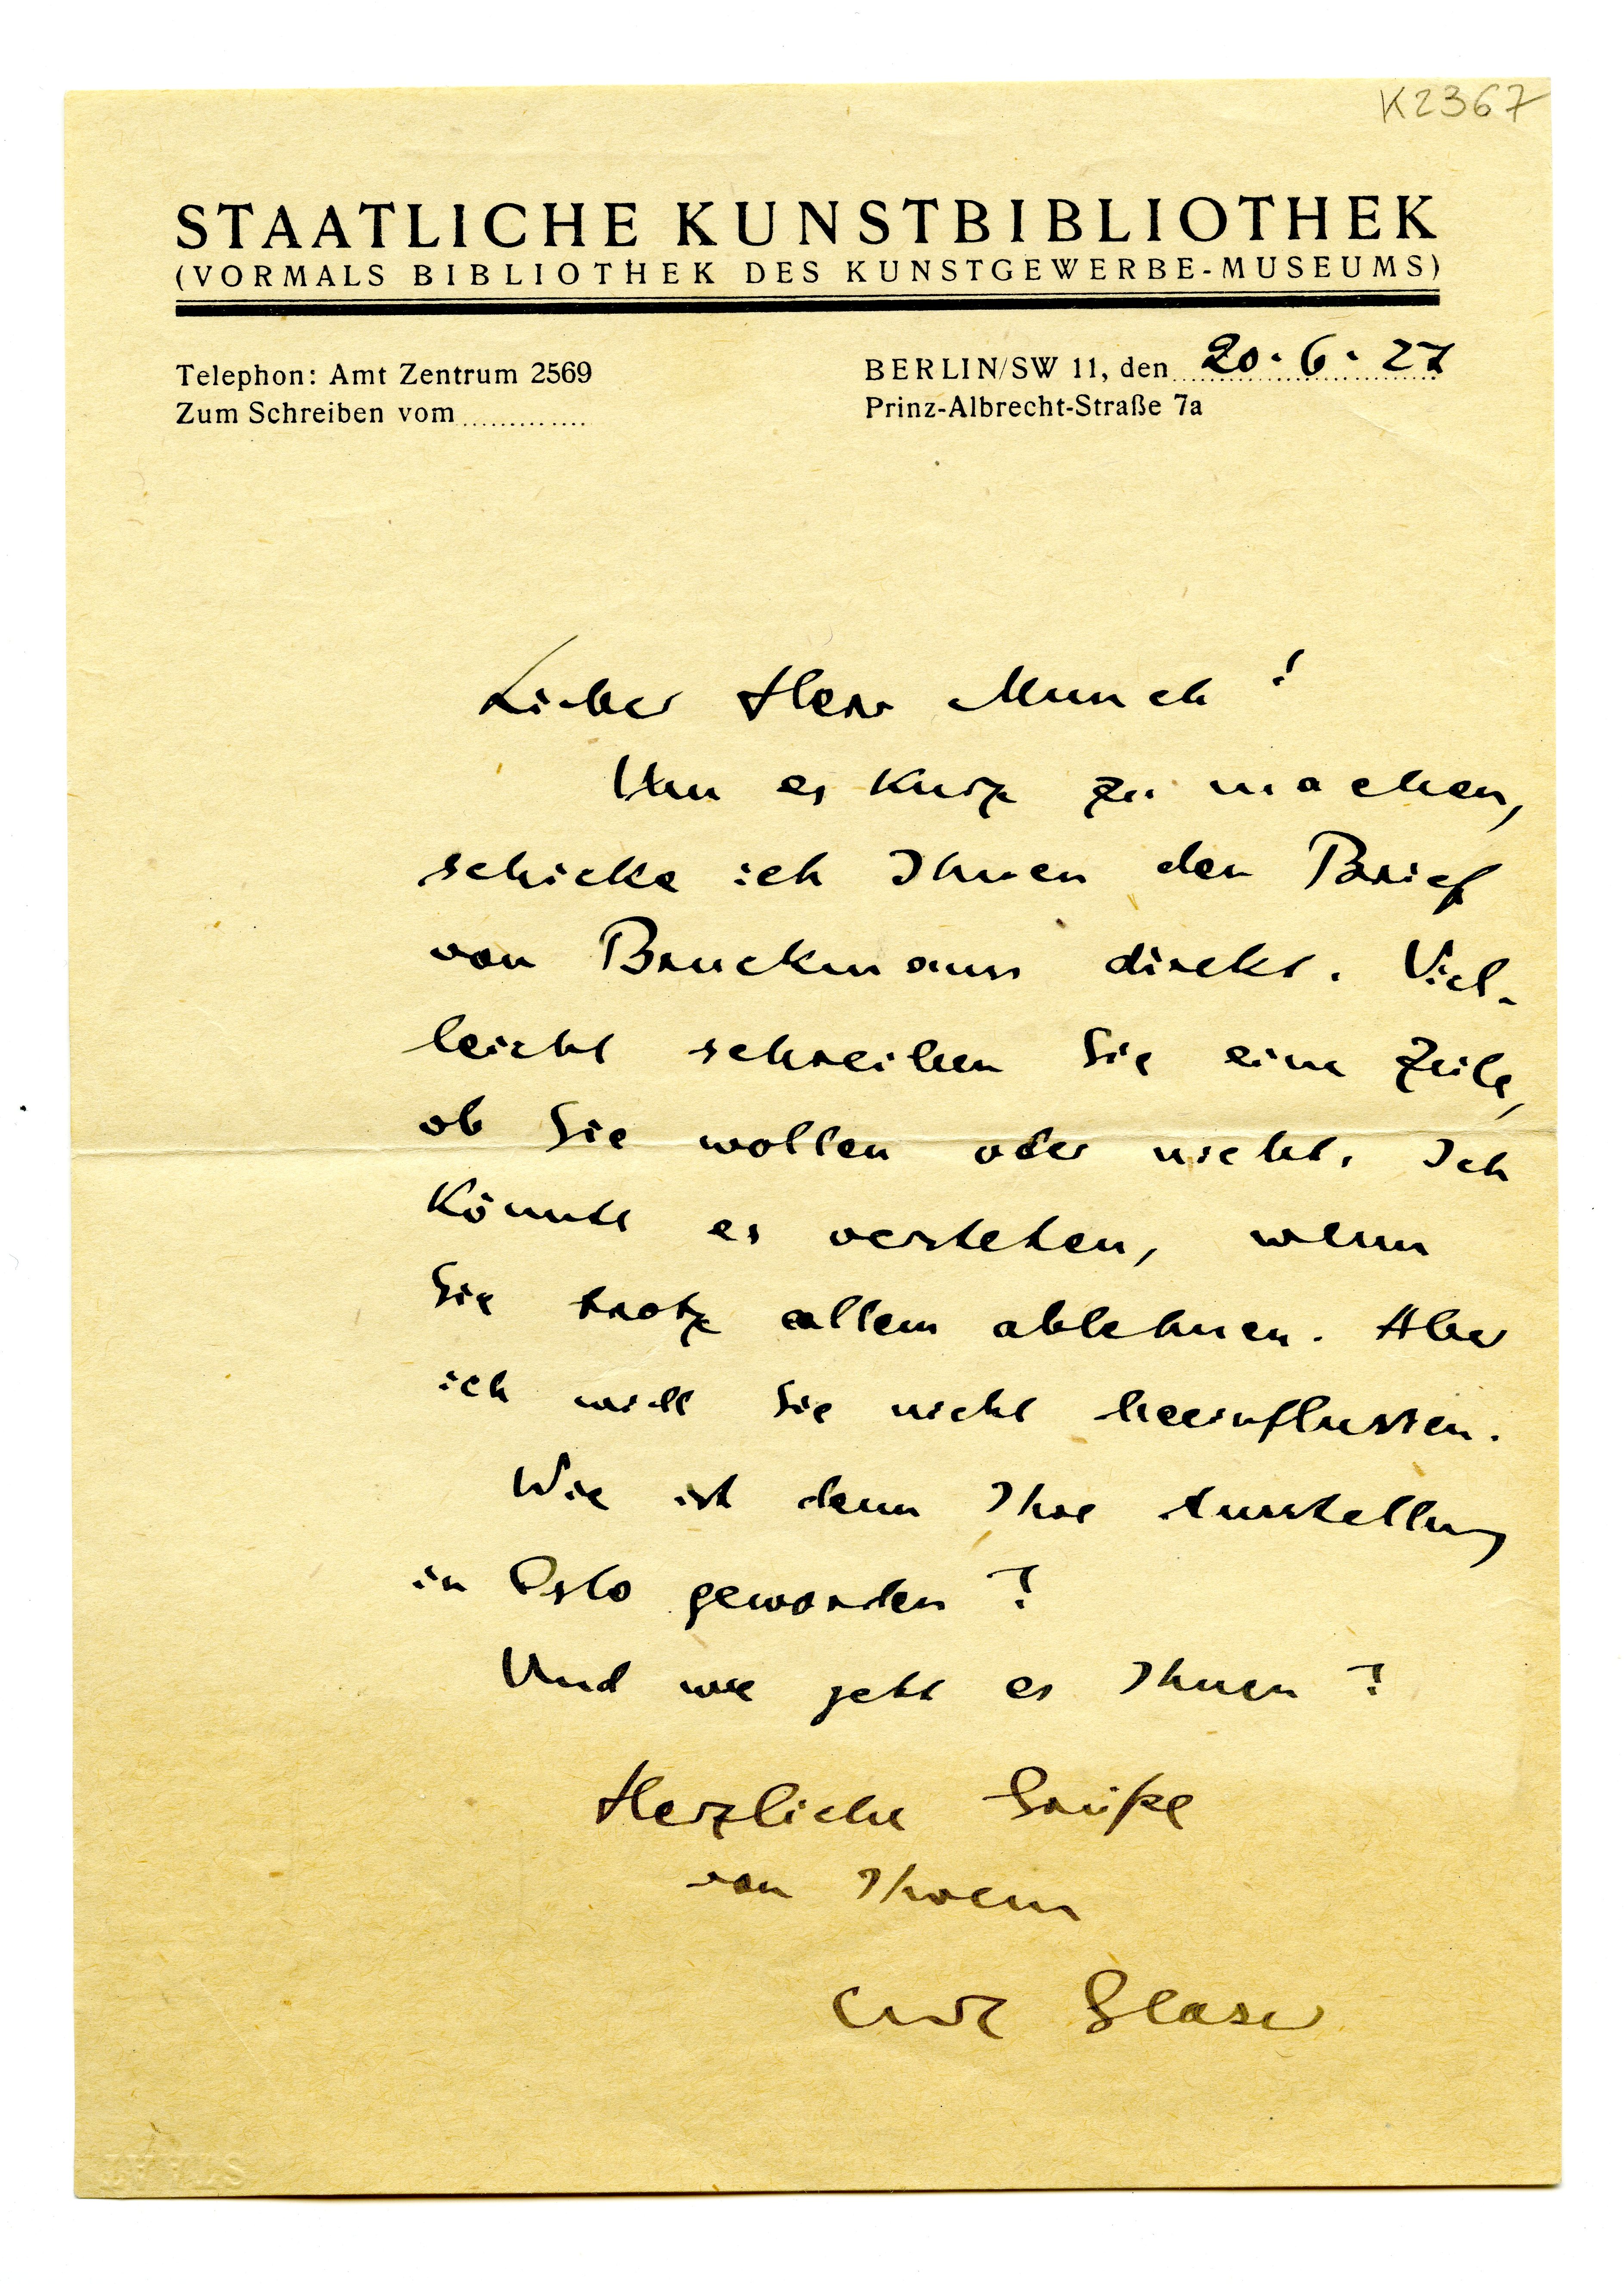 K2367
STAATLICHE KUNSTBIBLIOTHEK
(VORMALS BIBLIOTHEK DES KUNSTGEWERBE-MUSEUMS)
Telephon: Amt Zentrum 2569
Zum Schreiben vom
BERLIN/SW 11, den 20.6.27
Prinz-Albrecht-Straße 7a
Lieber Herr Munch!
Um es kurz zu machen,
schicke ich Ihnen den Brief
von Bruckmann direkt. Viel-
leicht schreiben Sie eine Zeile,
ob Sie wollen oder nicht. Ich
könnte es verstehen, wenn
Sie trotz allem ablehnen. Aber
ich will Sie nicht beeinflussen.
Wie ist denn Ihre Ausstellung
in Oslo geworden?
Und wie geht es Ihnen?
Herzliche Grüße
von Ihrem
Curt Glaser
STAAT